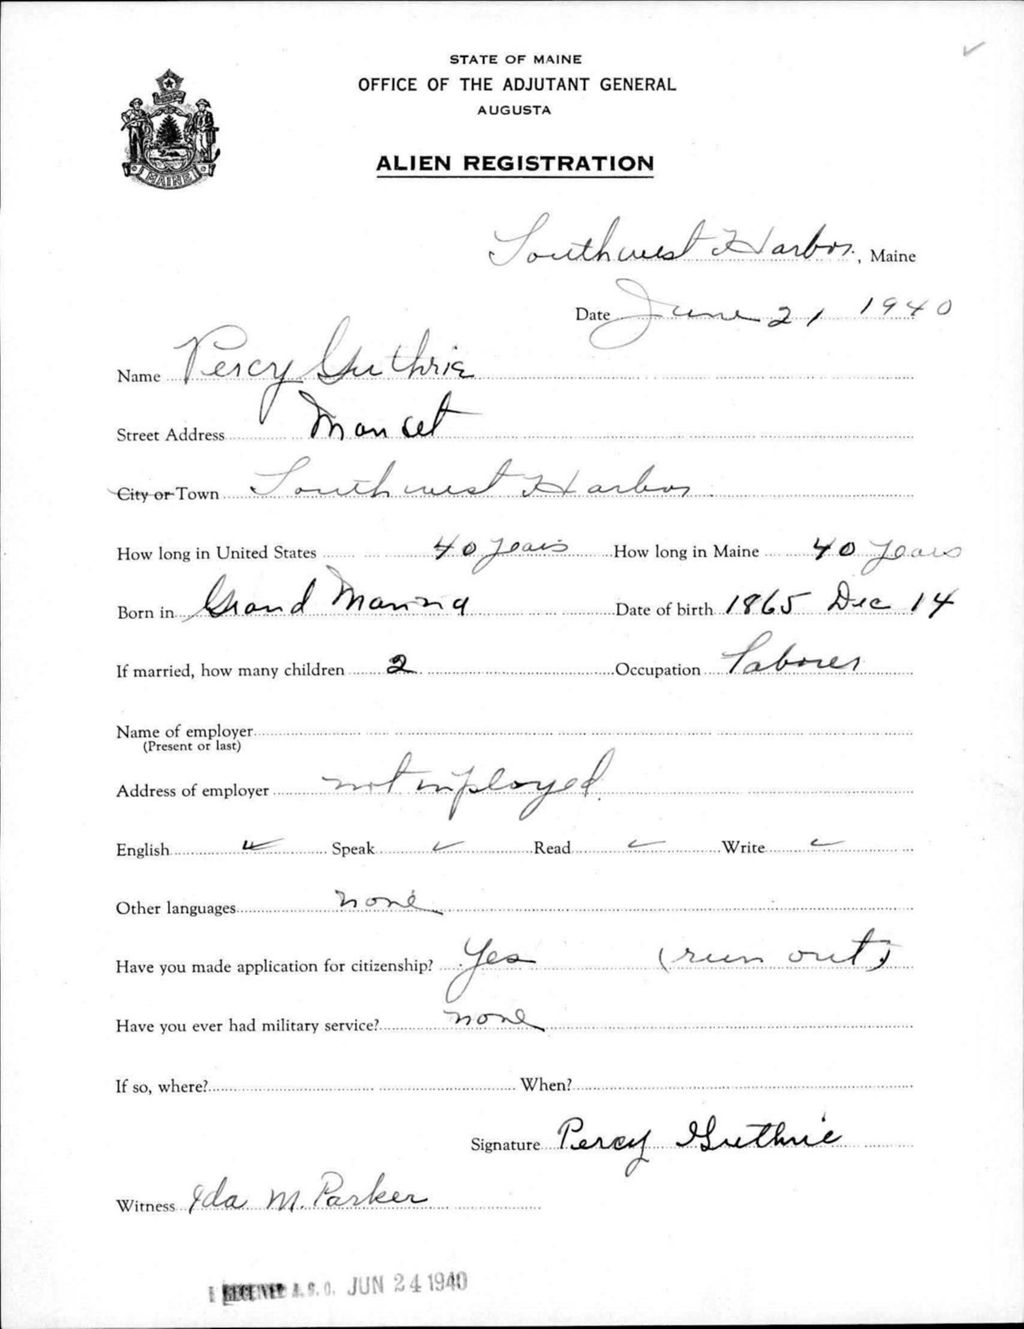 STATE OF MAINE
OFFICE OF THE ADJUTANT GENERAL
AUGUSTA
ALIEN REGISTRATION
MAINE
Southwest Harbor, Maine
Date June 21, 1940
Name Percy Guthrie
Street Address Manset
City or Town Southwest Harbor
How long in United States 40 years How long in Maine 40 years
Born in Grand Manna Date of birth 1865 Dec 14
If married, how many children 2 Occupation Laborer
Name of employer
(Present or last)
Address of employer not employed
English ✓ Speak ✓ Read ✓ Write ✓
Other languages none
Have you made application for citizenship? Yes (run out)
Have you ever had military service? none
If so, where? When?
Signature Percy Guthrie
Witness Ida M. Parker
RECEIVED A.G.O. JUN 24 1940